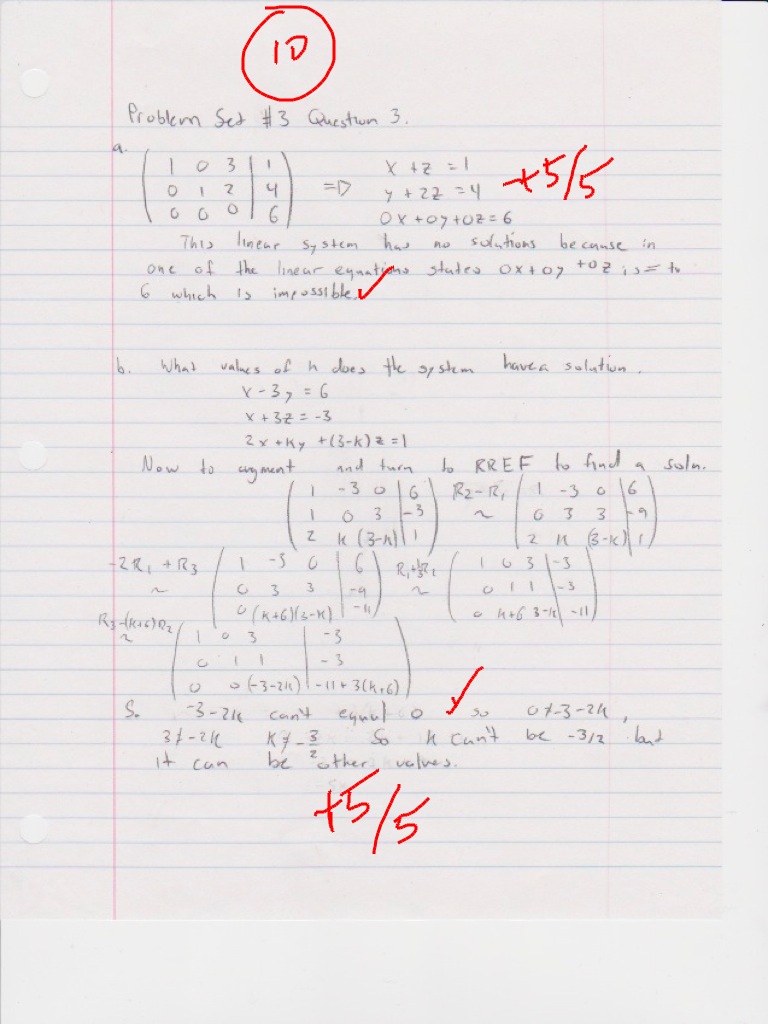 10
Problem Set #3 Question 3.
a.
( 1 0 3 | 1 ) x + z = 1
( 0 1 2 | 4 ) => y + 2z = 4 +5/5
( 0 0 0 | 6 ) 0x + 0y + 0z = 6
This linear system has no solutions because in
one of the linear equations states 0x + 0y + 0z is = to
6 which is impossible. ✓
b. What values of k does the system have a solution.
x - 3y = 6
x + 3z = -3
2x + ky + (3-k)z = 1
Now to augment and turn to RREF to find a soln.
( 1 -3 0 | 6 ) R2-R1 ( 1 -3 0 | 6 )
( 1 0 3 | -3 ) ~ ( 0 3 3 | -9 )
( 2 k (3-k) | 1 ) ( 2 k (3-k) | 1 )
-2R1 + R3 ( 1 -3 0 | 6 ) R1+⅓R2 ( 1 0 3 | -3 )
~ ( 0 3 3 | -9 ) ~ ( 0 1 1 | -3 )
( 0 (k+6) (3-k) | -11 ) ( 0 k+6 3-k | -11 )
R3-(k+6)R2 ( 1 0 3 | -3 )
~ ( 0 1 1 | -3 )
( 0 0 (-3-2k) | -11+3(k+6) )
So -3-2k can't equal 0 ✓ so 0≠-3-2k,
3≠-2k k≠-3/2 So k can't be -3/2 but
it can be other values.
+5/5